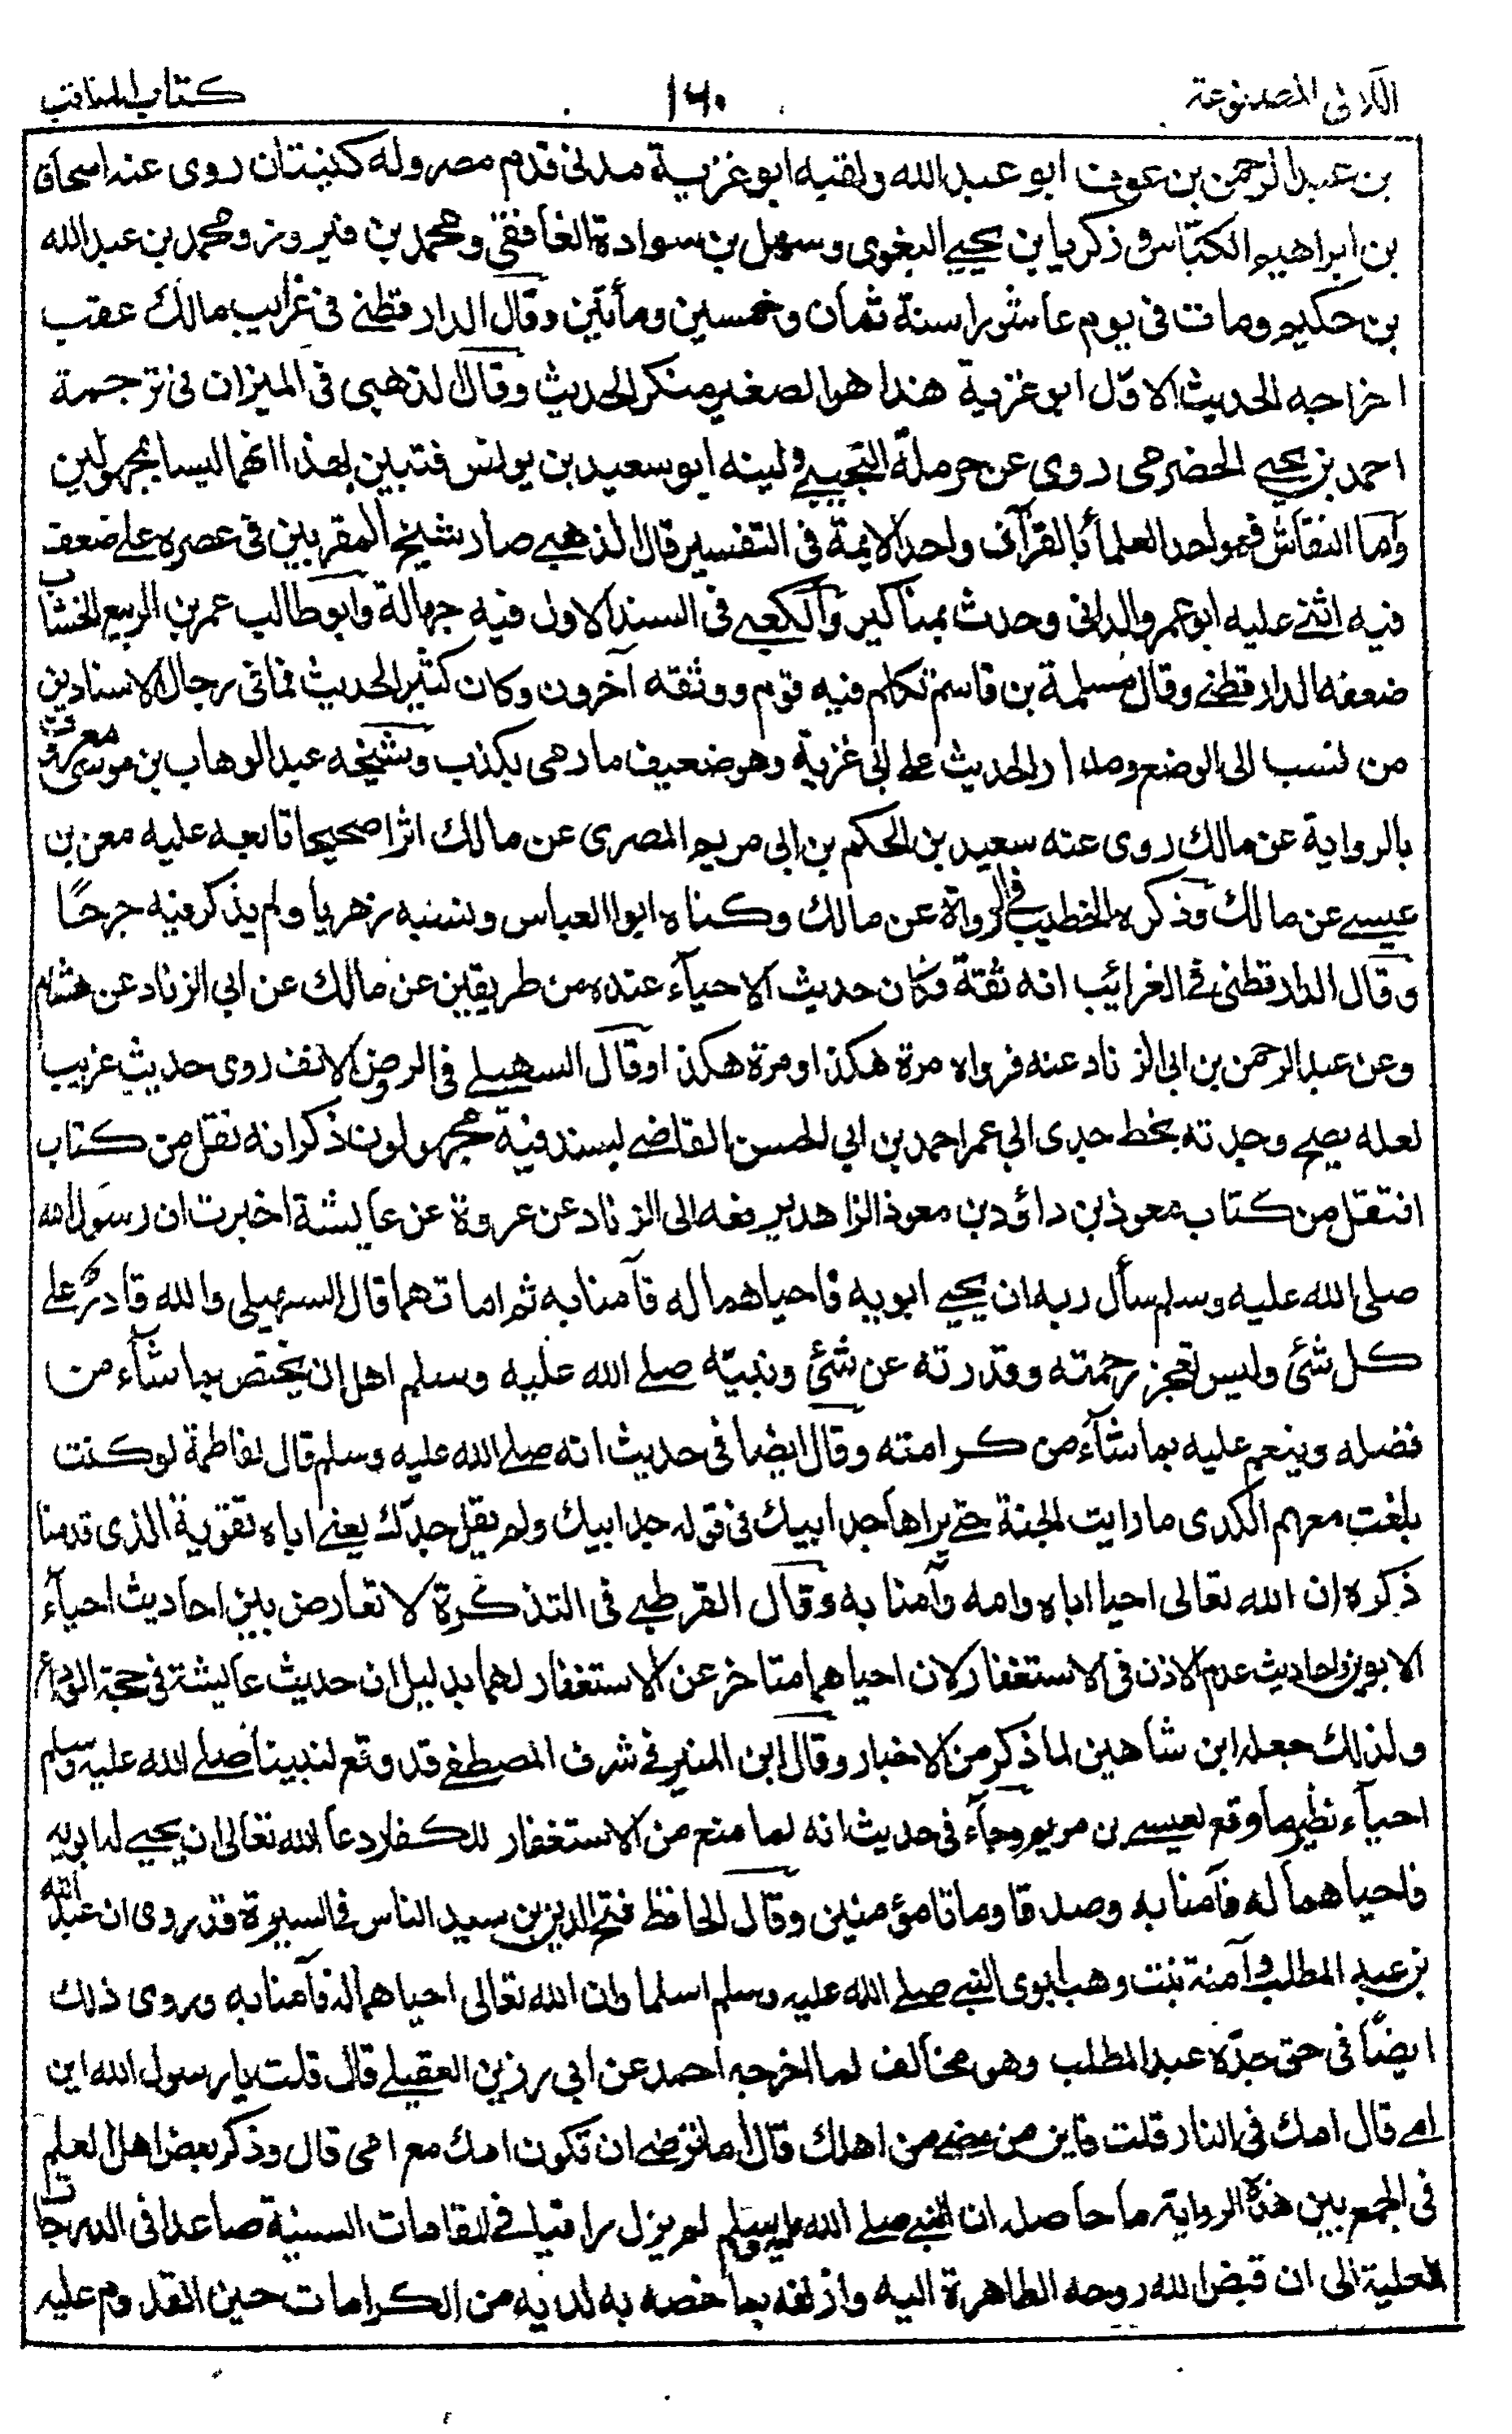 اللآلى المصنوعة
١٤٠
كتاب المناقب
بن عبد الرحمن بن عوف ابو عبد الله ولقبه ابو غزية مدنى قدم مصر وله كنيتان روى عنه اسحاق
بن ابراهيم الكبّاس و زكريا بن يحيى البغوى وسهل بن سوادة الغافقى ومحمد بن فيروز ومحمد بن عبد الله
بن حكيم ومات فى يوم عاشورا سنة ثمان وخمسين ومأتين وقال الدارقطنى فى غرايب مالك عقب
اخراجه الحديث الاوّل ابو غزية هذا هو الصغير منكر الحديث وقال الذهبى فى الميزان فى ترجمة
احمد بن يحيى الحضرمى روى عن حرملة التجيبى ولينه ابو سعيد بن يونس فتبين بهذا انهما ليسا بمجهولين
وآما النقاش فهو احد العلمأ بالقرآن واحد الايمة فى التفسير قال الذهبى صار شيخ المقريين فى عصره على ضعف
فيه اثنى عليه ابو عمرو الدانى وحدث بمناكير وآلكعبى فى السند الاول فيه جهالة وآبو طالب عمر بن الربيع الخشاب
ضعفه الدارقطنى وقال مسلمة بن قاسم تكلم فيه قوم ووثقه آخرون وكان كثير الحديث فما فى رجال الاسنادين
من نسب الى الوضع ومدار الحديث على ابى غزية وهو ضعيف ما رمى بكذب وشيخه عبد الوهاب بن موسى معروف
بالرواية عن مالك روى عنه سعيد بن الحكم بن ابى مريم المصرى عن مالك اثرا صحيحا تابعه عليه معن بن
عيسى عن مالك وذكره الخطيب فى الرواة عن مالك وكناه ابوا العباس ونسبه زهريا ولم يذكر فيه جرحًا
وقال الدارقطنى فى الغرائب انه ثقة فكان حديث الاحيآء عنده من طريقين عن مالك عن ابى الزناد عن هشام
وعن عبد الرحمن بن ابى الزناد عنه فرواه مرة هكذا ومرة هكذا وقال السهيلى فى الروض الانف روى حديث غريب
لعله يصح وجدته بخط جدى ابى عمر احمد بن ابى الحسن القاضى بسند فيه مجهولون ذكر انه نقل من كتاب
انتقل من كتاب معوذ بن داؤد بن معوذ الزاهد يرفعه الى الزناد عن عروة عن عايشة اخبرت ان رسول الله
صلى الله عليه وسلم سأل ربه ان يحيى ابويه فاحياهما له فآمنا به ثم اماتهما قال السهيلى والله قادر على
كل شئ وليس تعجز رحمته وقدرته عن شئ ونبيّه صلى الله عليه وسلم اهل ان يختص بما شآء من
فضله وينعم عليه بما شآء من كرامته وقال ايضا فى حديث انه صلى الله عليه وسلم قال لفاطمة لو كنت
بلغت معهم الكدى ما رايت الجنة حتى يراها جد ابيك فى قوله جد ابيك ولم يقل جدّك يعنى اباه تقوية الذى قدمنا
ذكره ان الله تعالى احيا اباه وامه وآمنا به وقال القرطبى فى التذكرة لا تعارض بين احاديث احيآء
الابوين واحاديث عدم الاذن فى الاستغفار لان احياهما متاخر عن الاستغفار لهما بدليل ان حديث عايشة فى حجة الوداع
ولذلك جعله ابن شاهين لما ذكر من الاخبار وقال ابن المنير فى شرف المصطفى قد وقع لنبينا صلى الله عليه وسلم
احيآء نظير ما وقع لعيسى بن مريم وجآء فى حديث انه لما منع من الاستغفار للكفار دعا الله تعالى ان يحيى له ابويه
فاحياهما له فآمنا به وصدقا وماتا مؤمنين وقال الحافظ فتح الدين بن سيد الناس فى السيرة قد روى ان عبد الله
بن عبد المطلب وآمنة بنت وهب ابوى النبى صلى الله عليه وسلم اسلما وان الله تعالى احياهما له فآمنا به وروى ذلك
ايضًا فى حق جدّه عبد المطلب وهو مخالف لما اخرجه احمد عن ابى رزين العقيلى قال قلت يا رسول الله اين
امى قال امك فى النار قلت فاين من مضى من اهلك قال أما ترضى ان تكون امك مع امى قال وذكر بعض اهل العلم
فى الجمع بين هذه الرواية ما حاصله ان النبى صلى الله عليه وسلم لم يزل راقيا فى المقامات السنية صاعدا فى الدرجات
العلية الى ان قبض الله روحه الطاهرة اليه وازلفه بما خصه به لديه من الكرامات حين القدوم عليه